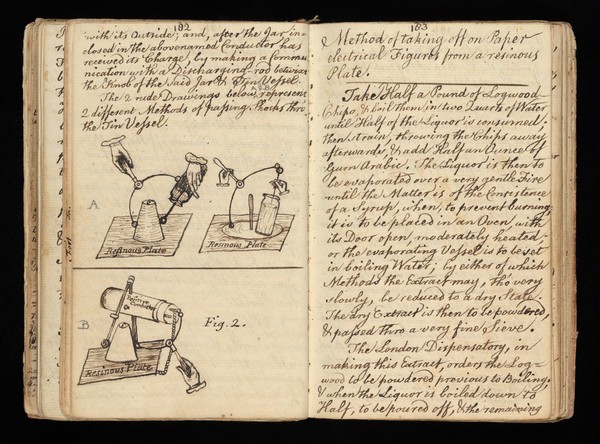 182
with its Outside; and, after the Jar in-
closed in the abovenamed Conductor has
received its Charge, by making a Commu-
nication with a Discharging-rod between
the Knob of the said Jar & Tin Vessel.
The 2 rude Drawings below represent
2 different Methods of passing Shocks thro
the Tin Vessel.
A
Resinous Plate
Resinous Plate
B
Positive
Conductor
Fig. 2.
Resinous Plate
183
Method of taking off on Paper
electrical Figures from a resinous
Plate.
Take Half a Pound of Logwood
Chips, & boil them in two Quarts of Water
until Half of the Liquor is consumed.
then strain, throwing the Chips away
afterwards, & add Half an Ounce of
Gum Arabic. The Liquor is then to
be evaporated over a very gentle Fire
until the Matter is of the Consistence
of a Syrup, when, to prevent burning,
it is to be placed in an Oven, with
its Door open, moderately heated,
or the evaporating Vessel is to be set
in boiling Water; by either of which
Methods the Extract may, tho' very
slowly, be reduced to a dry State.
The dry Extract is then to be powdered,
& passed thro a very fine Sieve.
The London Dispensatory, in
making this Extract, orders the Log-
wood to be powdered previous to Boiling,
& when the Liquor is boiled down to
Half, to be poured off, & the remaining